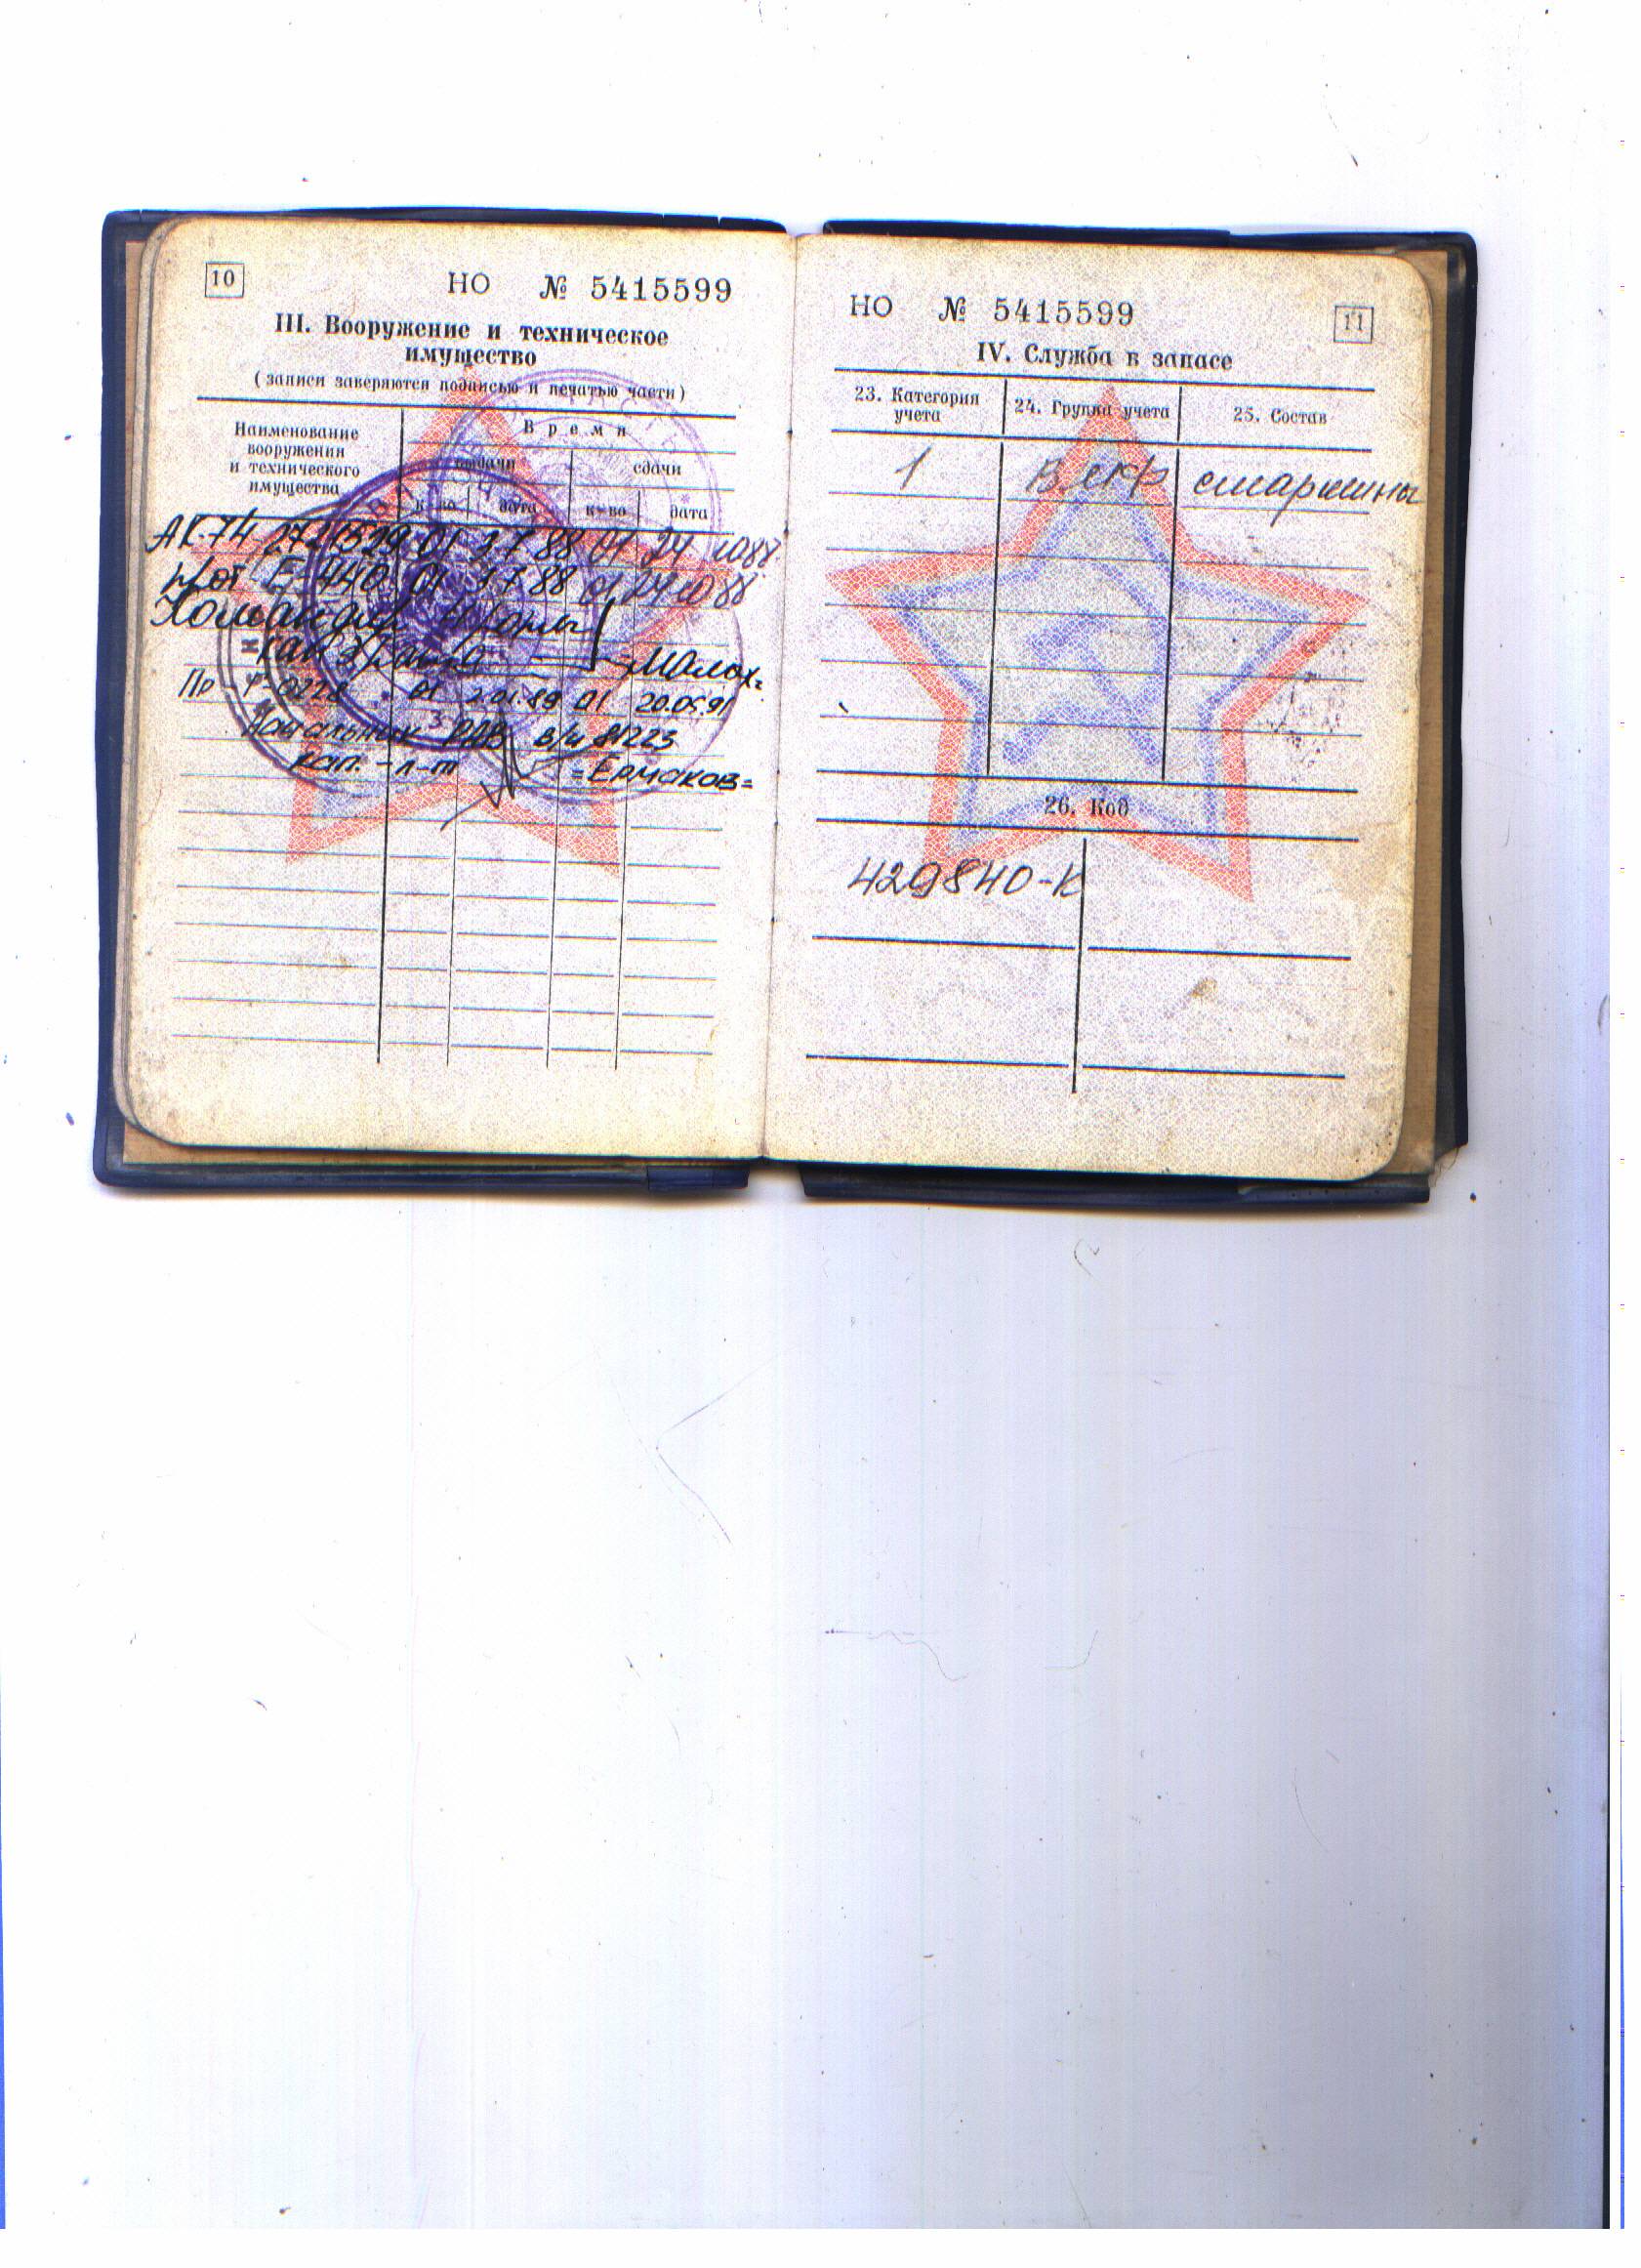 10
НО № 5415599
III. Вооружение и техническое
имущество
(записи заверяются подписью и печатью части)
Наименование
вооружения
и технического
имущества
Время
выдачи
сдачи
к-во
дата
к-во
дата
АК-74 01 3 7 88 01 24 10 88
01 3 7 88 01 24 10 88
Командир
Пр 01 2.01.89 01 20.05.91
Начальник РАВ в/ч 81223
кап. -л-т =Ермаков=
НО № 5415599
11
IV. Служба в запасе
23. Категория
учета
24. Группа учета
25. Состав
1
старшины
26. Код
429840-К